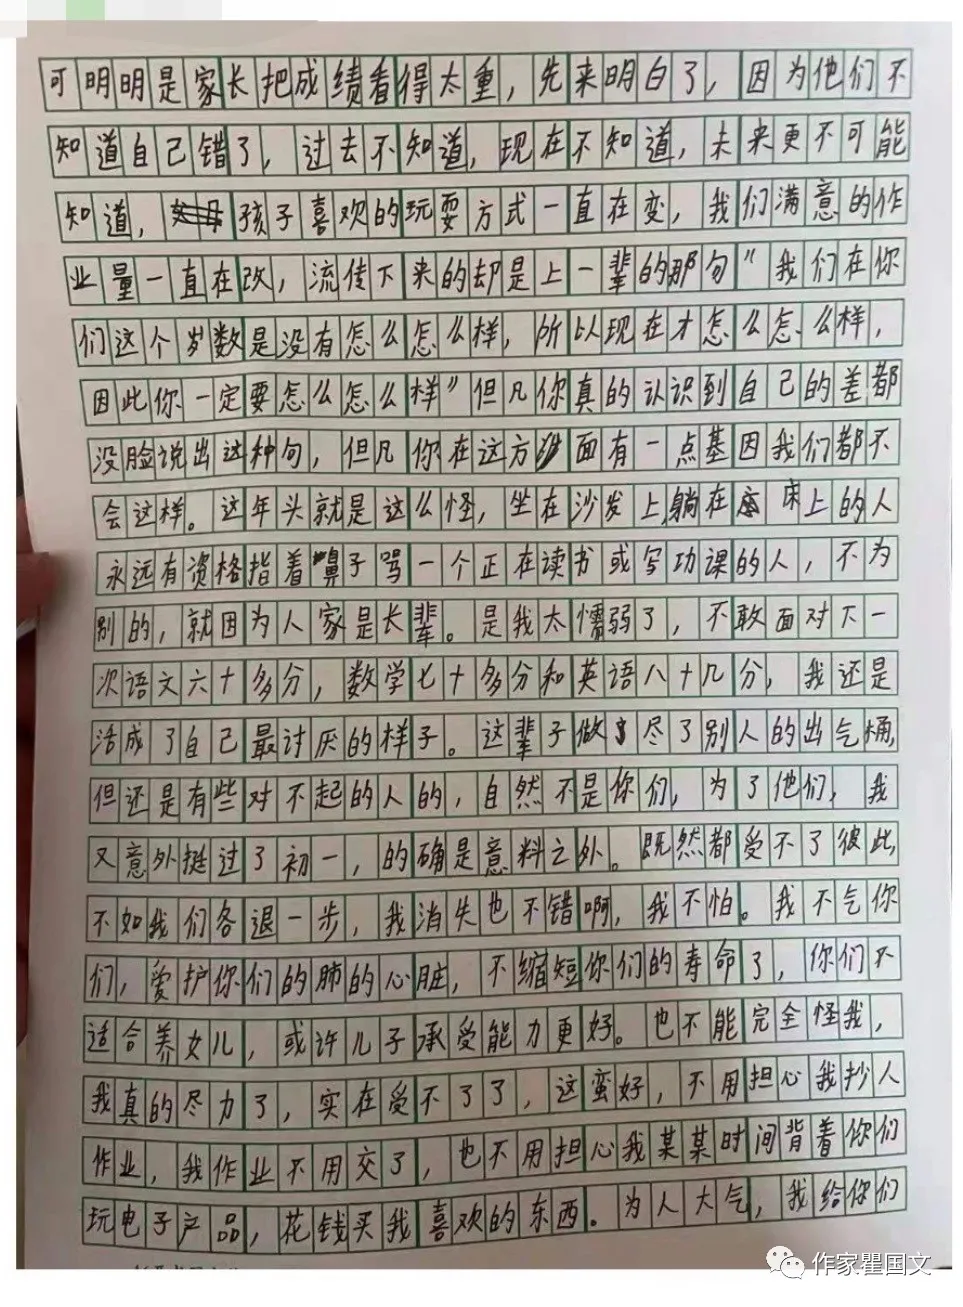 可明明是家长把成绩看得太重，先来明白了，因为他们不
知道自己错了，过去不知道，现在不知道，未来更不可能
知道，孩子喜欢的玩耍方式一直在变，我们满意的作
业量一直在改，流传下来的却是上一辈的那句“我们在你
们这个岁数是没有怎么怎么样，所以现在才怎么怎么样，
因此你一定要怎么怎么样”但凡你真的认识到自己的差都
没脸说出这种句，但凡你在这方面有一点基因我们都不
会这样。这年头就是这么怪，坐在沙发上，躺在床上的人
永远有资格指着鼻子骂一个正在读书或写功课的人，不为
别的，就因为人家是长辈。是我太懦弱了，不敢面对下一
次语文六十多分，数学七十多分和英语八十几分，我还是
活成了自己最讨厌的样子。这辈子做尽了别人的出气桶，
但还是有些对不起的人的，自然不是你们，为了他们，我
又意外挺过了初一，的确是意料之外。既然都受不了彼此，
不如我们各退一步，我消失也不错啊，我不怕。我不气你
们，爱护你们的肺的心脏，不缩短你们的寿命了，你们不
适合养女儿，或许儿子承受能力更好。也不能完全怪我，
我真的尽力了，实在受不了了，这蛮好，不用担心我抄人
作业，我作业不用交了，也不用担心我某某时间背着你们
玩电子产品，花钱买我喜欢的东西。为人大气，我给你们
作家瞿国文